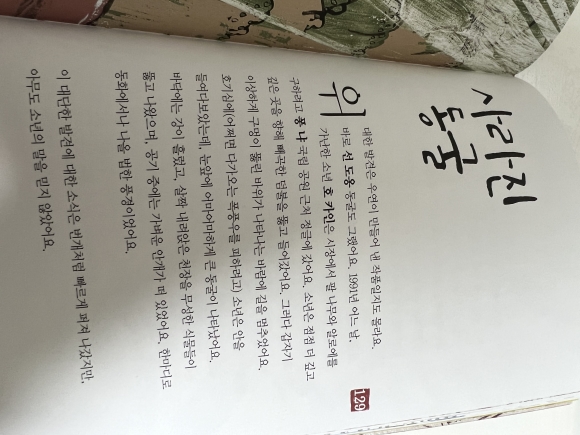 사라진
동굴
위대한 발견은 우연이 만들어 낸 작품일지도 몰라요.
바로 선도옹 동굴도 그랬어요. 1991년 어느 날,
가난한 소년 호 카인은 시장에서 팔 나무와 알로에를
구하려고 퐁 나 국립 공원 근처 정글에 갔어요. 소년은 점점 더 깊고
깊은 곳을 향해 빼곡한 덤불을 뚫고 들어갔어요. 그러다 갑자기
이상하게 구멍이 뚫린 바위가 나타나는 바람에 걸음을 멈추었어요.
호기심에(어쩌면 다가오는 폭풍우를 피하려고) 소년은 안을
들여다보았는데, 눈앞에 어마어마하게 큰 동굴이 나타났어요.
바닥에는 강이 흘렀고, 살짝 내려앉은 천장을 무성한 식물들이
뚫고 나왔으며, 공기 중에는 가벼운 안개가 떠 있었어요. 한마디로
동화에서나 나올 법한 풍경이었어요.
이 대단한 발견에 대한 소식은 번개처럼 빠르게 퍼져 나갔지만,
아무도 소년의 말을 믿지 않았어요.
129